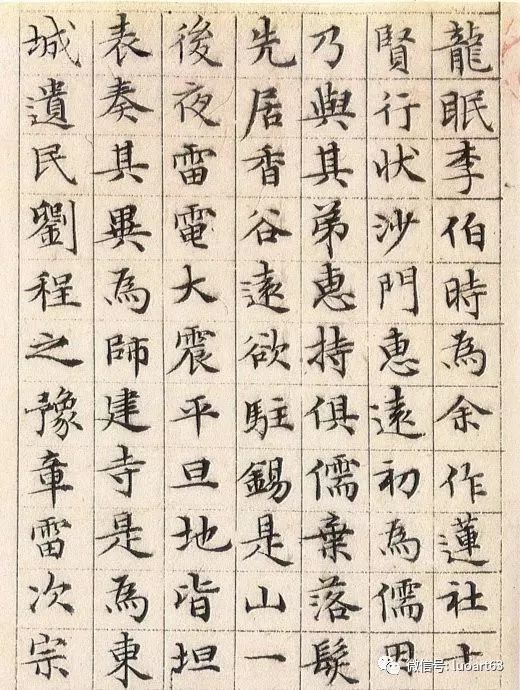 龍眠李伯時為余作蓮社十
賢行狀沙門惠遠初為儒
乃與其弟惠持俱儒棄落髮
先居香谷遠欲駐錫是山一
後夜雷電大震平旦地皆坦
表奏其異為師建寺是為東
城遺民劉程之豫章雷次宗
微信号: luoart63